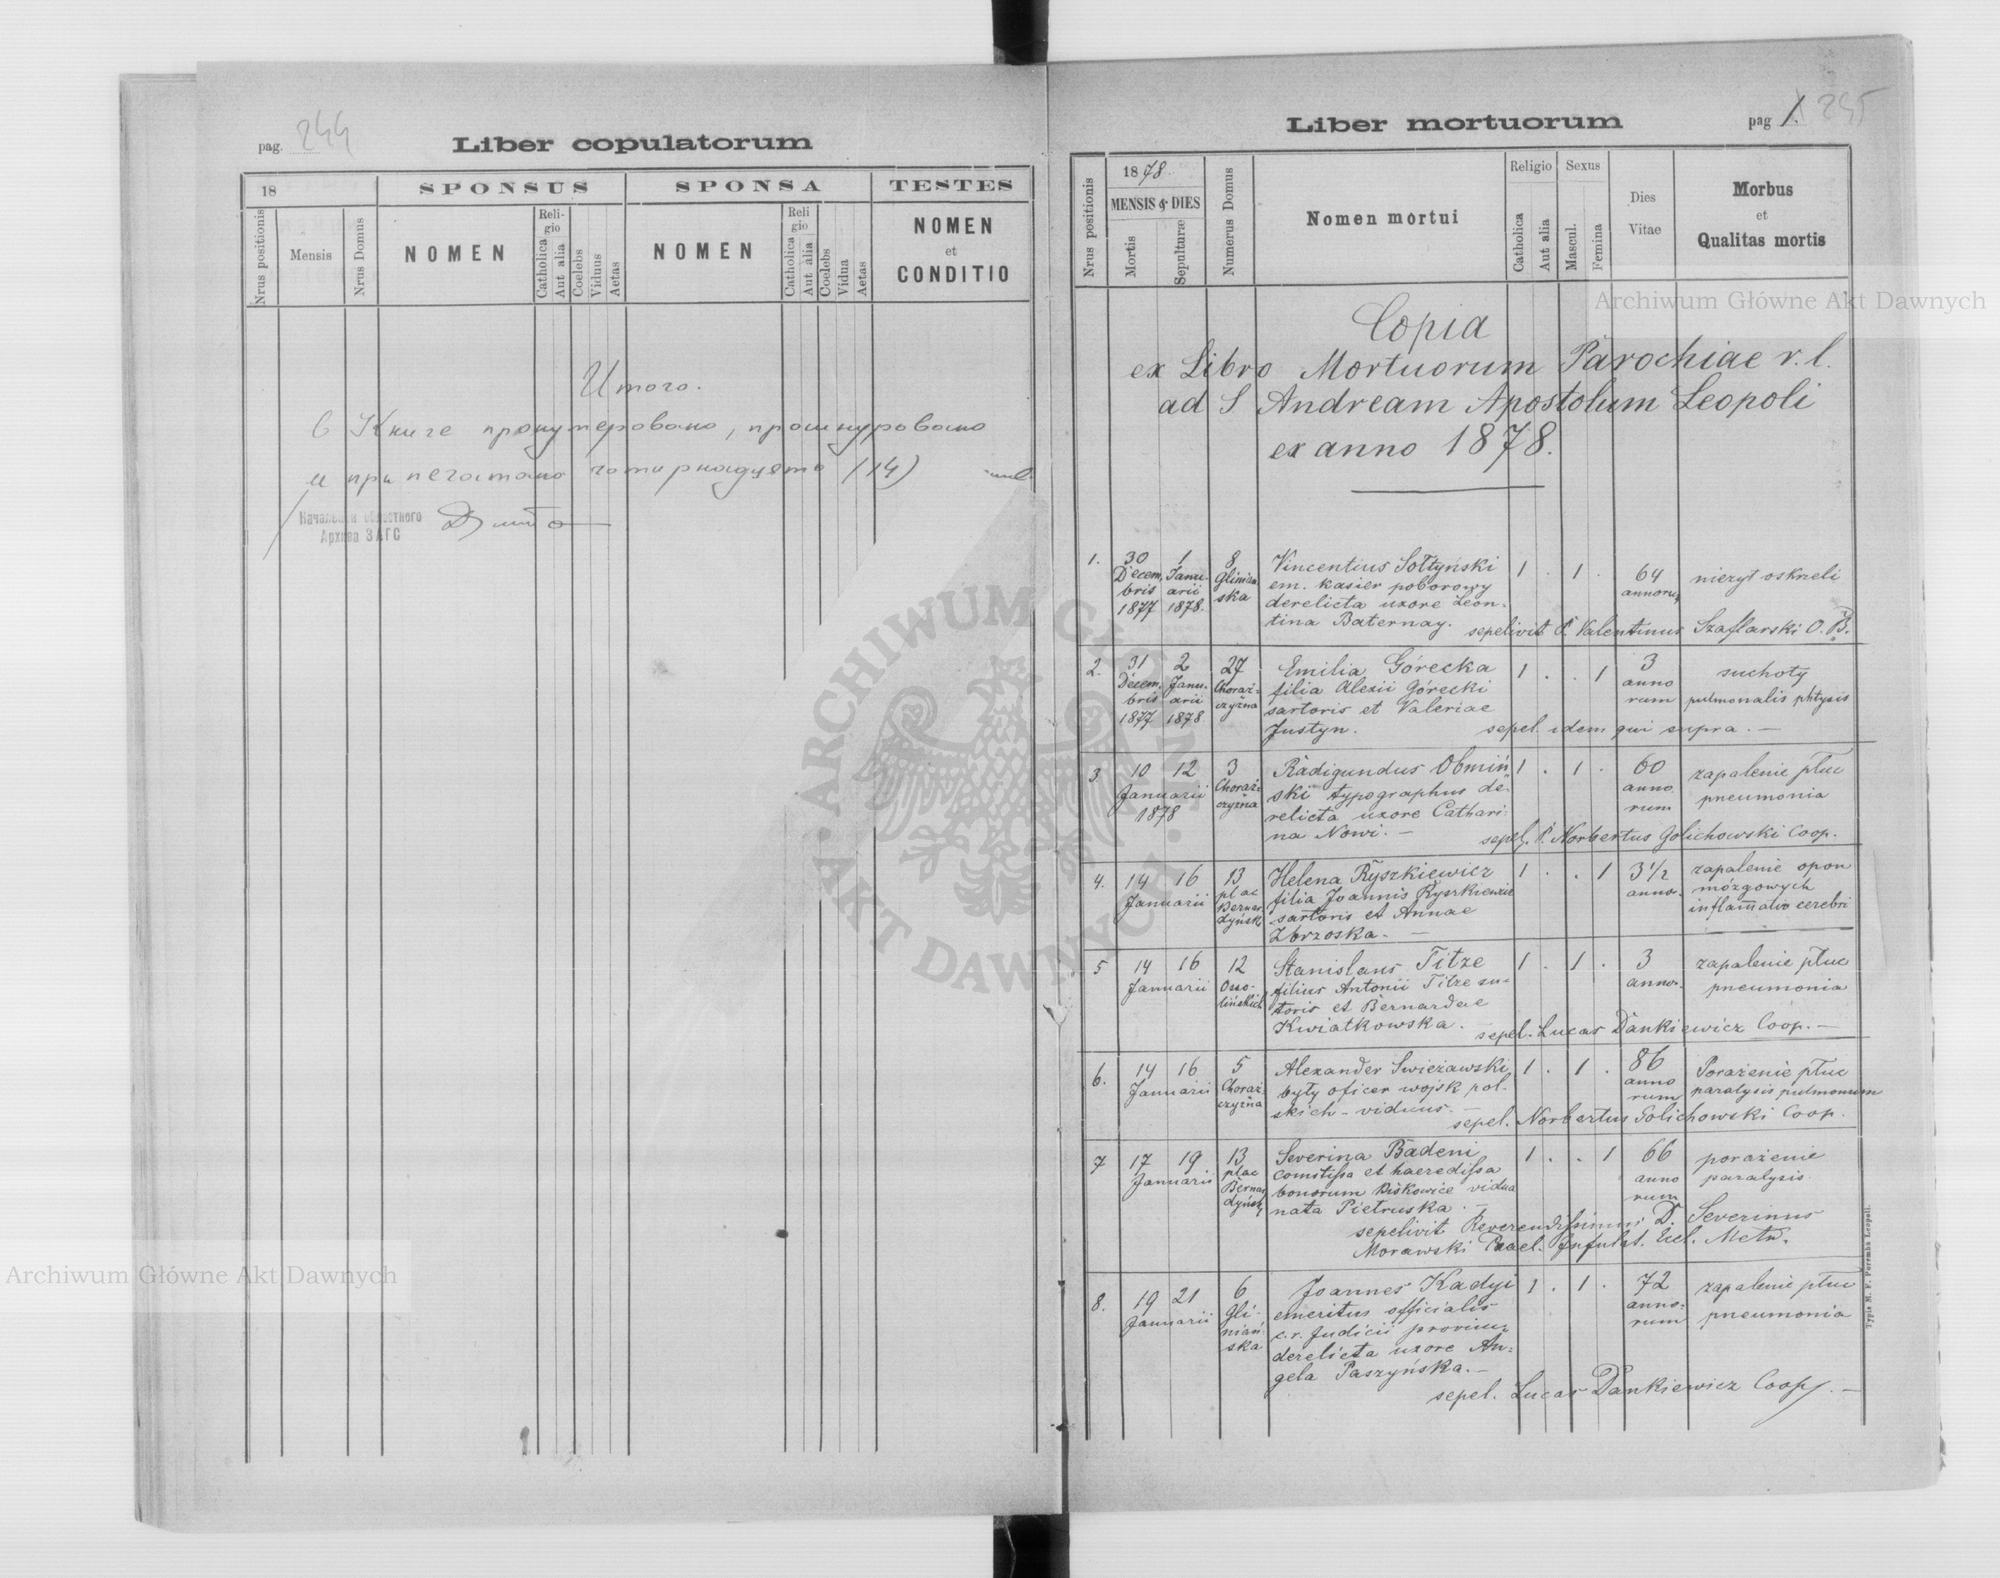 pag. 244
Liber copulatorum
18
SPONSUS
SPONSA
TESTES
Nrus positionis
Mensis
Nrus Domus
NOMEN
Religio
Catholica
Aut alia
Coelebs
Viduus
Aetas
NOMEN
Religio
Catholica
Aut alia
Coelebs
Vidua
Aetas
NOMEN
et
CONDITIO
Итого.
В Книге пронумеровано, прошнуровано
и припечатано четирнадцять (14)
Начальник областного
Архива ЗАГС
Liber mortuorum
pag 1. 245
Nrus positionis
1878.
MENSIS & DIES
Mortis
Sepulturæ
Numerus Domus
Nomen mortui
Religio
Catholica
Aut alia
Sexus
Mascul.
Femina
Dies
Vitae
Morbus
et
Qualitas mortis
Copia
ex Libro Mortuorum Parochiae r. l.
ad S Andream Apostolum Leopoli
ex anno 1878.
1. 30 1 8 Vincentius Sołtyński 1 . 1 . 64 nieżyt oskrzeli
Decem. Janu- Glinian- em. kasier poborowy annorum
bris arii ska derelicta uxore Leon-
1877 1878. tina Baternay. sepelivit P. Valentinus Szaflarski O. B.
2. 31 2 27 Emilia Górecka 1 . . 1 3 suchoty
Decem. Janu- Chorąż- filia Alexii Górecki anno
bris arii czyzna sartoris et Valeriae rum pulmonalis phtysis
1877 1878 Justyn. sepel. idem qui supra. —
3 10 12 3 Radigundus Obmiń 1 . 1 . 60 zapalenie płuc
Januarii Chorąż- ski typographus de- anno pneumonia
1878 czyzna relicta uxore Cathari- rum
na Nowi. — sepel. P. Norbertus Golichowski Coop.
4. 14 16 13 Helena Ryszkiewicz 1 . . 1 3 1/2 zapalenie opon
Januarii plac filia Joannis Ryszkiewicz anno. mózgowych
Bernar- sartoris et Annae inflamatio cerebri
dyńsk Zbrzoska. —
5 14 16 12 Stanislaus Titze 1 . 1 . 3 zapalenie płuc
Januarii Osso- filius Antonii Titze su- anno. pneumonia
lińskich toris et Bernardae
Kwiatkowska. — sepel. Lucas Dankiewicz Coop. —
6. 14 16 5 Alexander Swieżawski 1 . 1 . 86 Porażenie płuc
Januarii Chorąż- były oficer wojsk pol- anno paralysis pulmonum
czyzna skich - viduus. — rum
sepel. Norbertus Golichowski Coop.
7 17 19 13 Severina Badeni 1 . . 1 66 porażenie
Januarii plac comitissa et haeredissa anno paralysis.
Bernar- bonorum Biskowice vidua rum
dyńsk nata Pietruska. —
sepelivit Reverendissimus D. Severinus
Morawski Prael. Infulat. Eccl. Metr.
8. 19 21 6 Joannes Kadyi 1 . 1 . 72 zapalenie płuc
Januarii Gli- emeritus officialis anno- pneumonia
niań- c.r. Judicii provinc. rum
ska derelicta uxore An-
gela Paszyńska. —
sepel. Lucas Dankiewicz Coop. —
Typis M. F. Poremba Leopoli.
Archiwum Główne Akt Dawnych
Archiwum Główne Akt Dawnych
ARCHIWUM GŁÓWNE AKT DAWNYCH